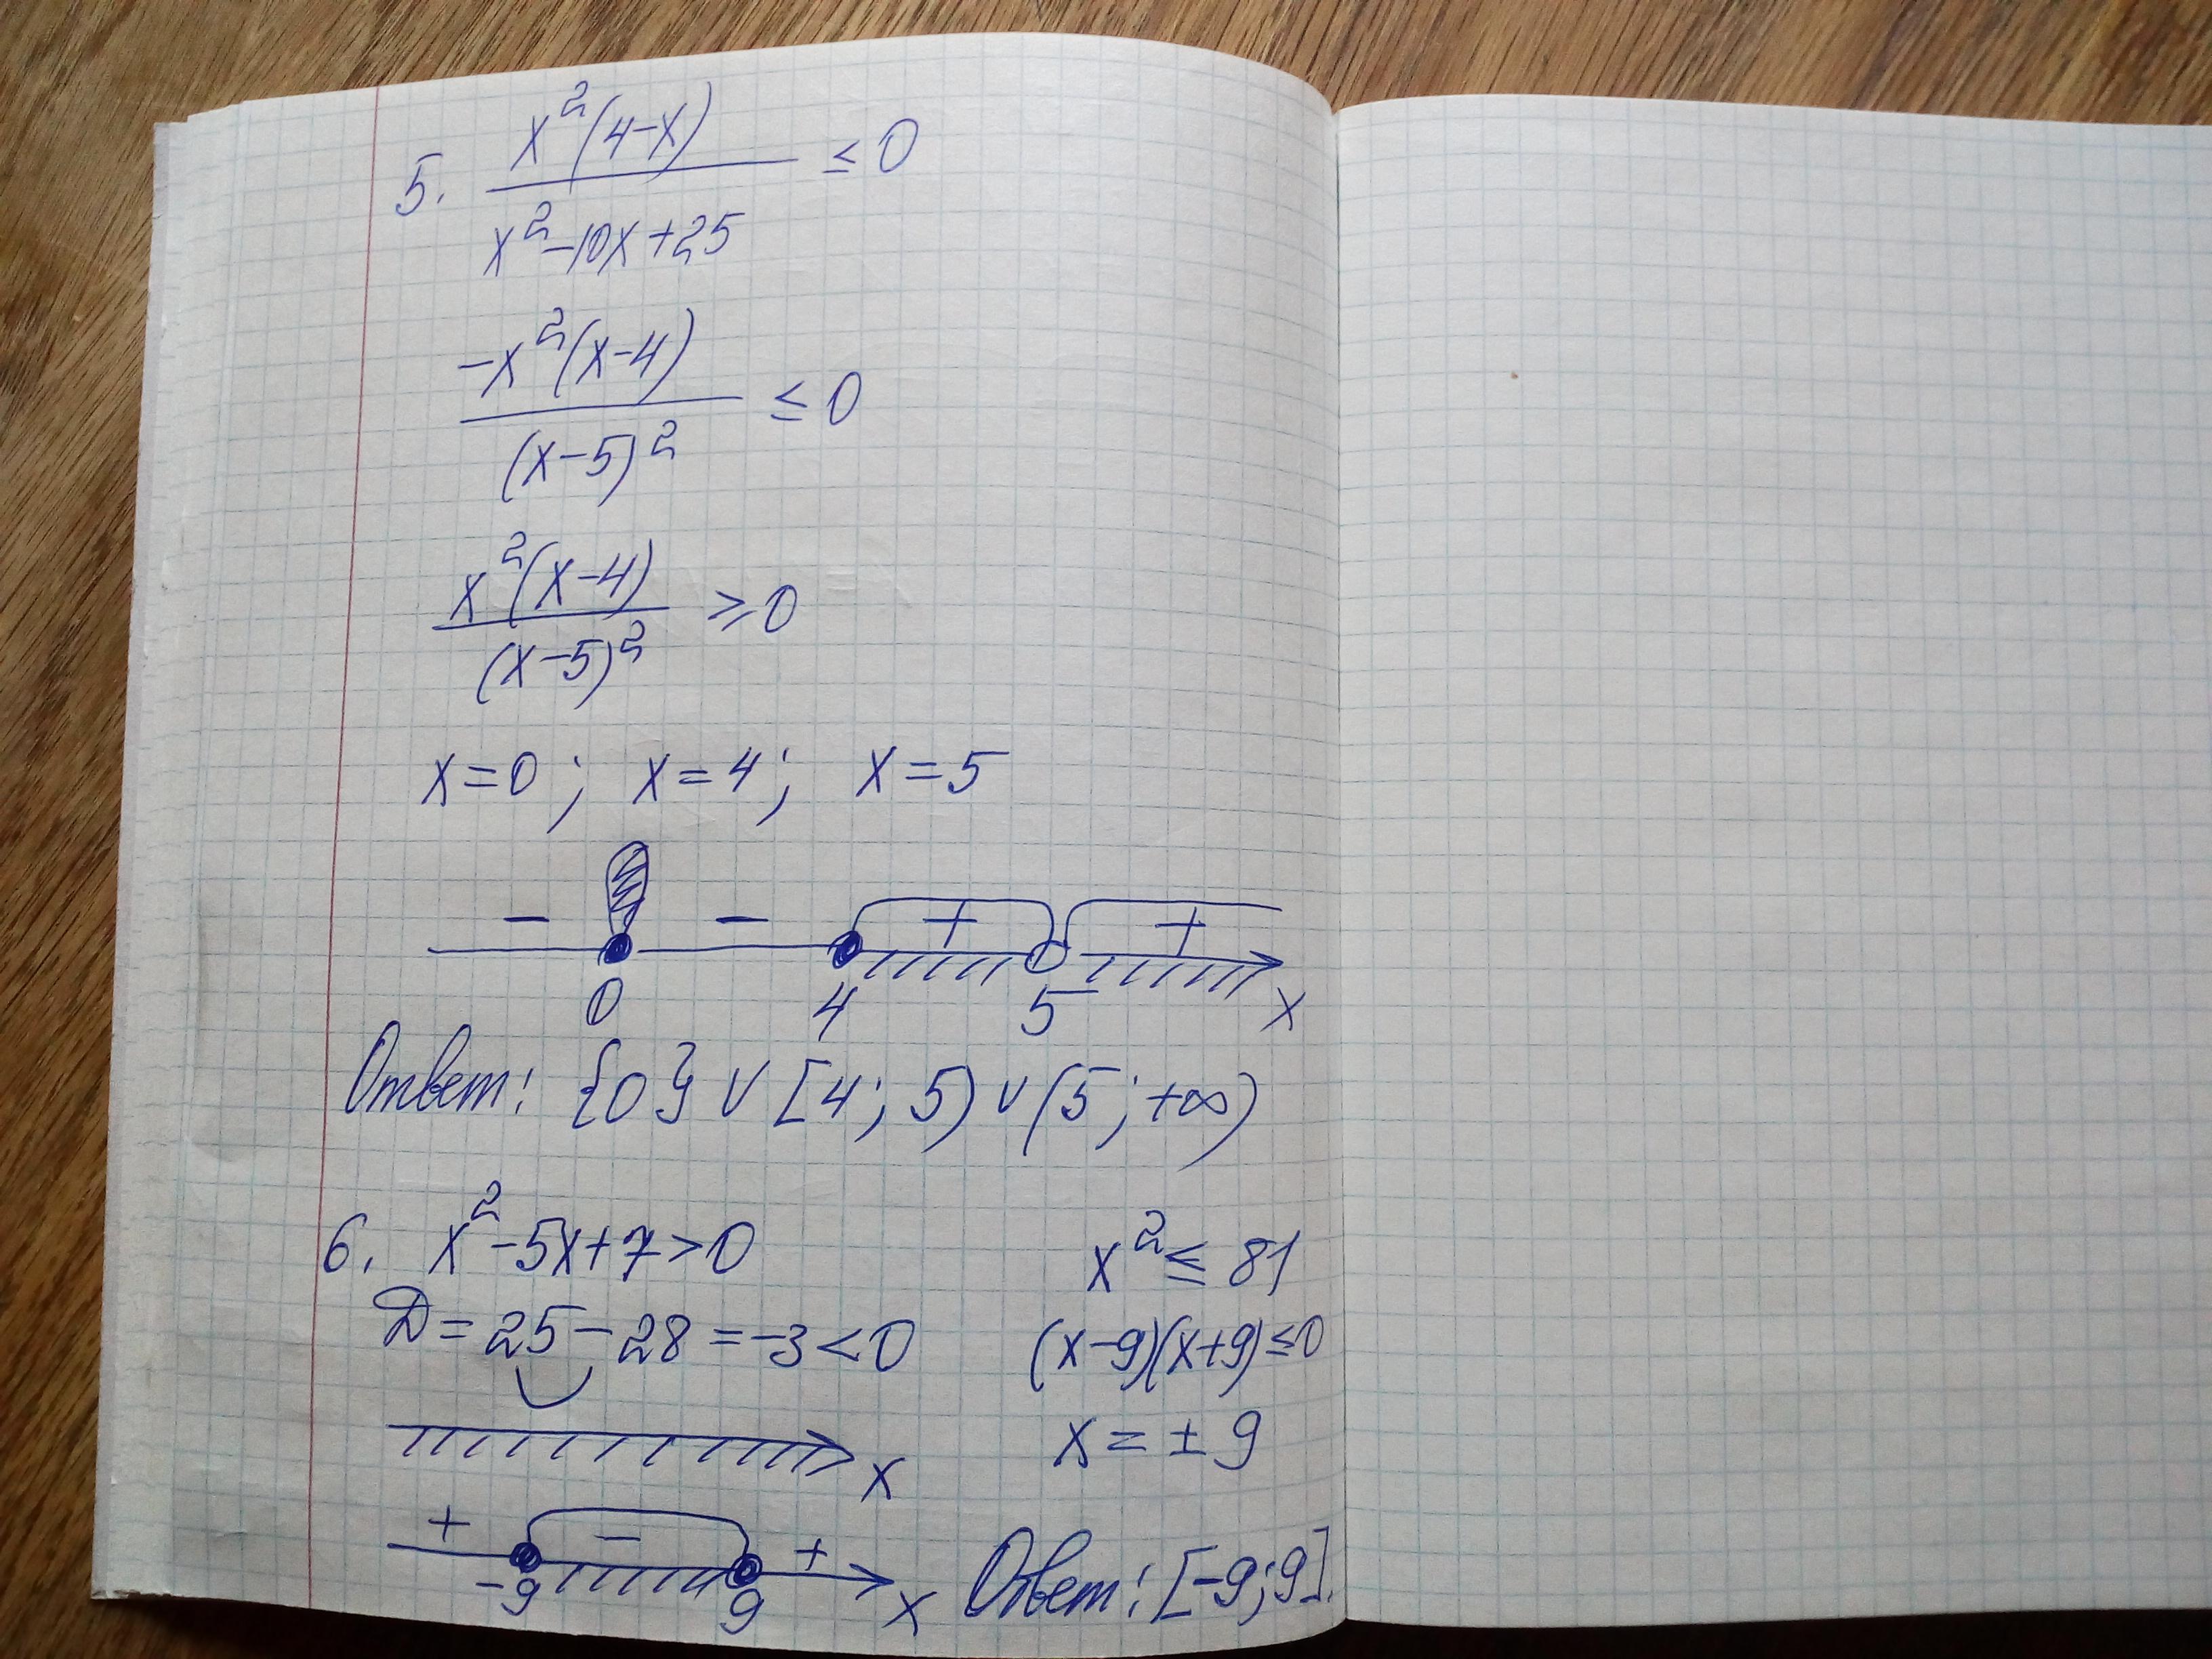 5. x²(4-x) / x²-10x+25 ≤ 0
-x²(x-4) / (x-5)² ≤ 0
x²(x-4) / (x-5)² ≥ 0
x=0; x=4; x=5
- - + +
0 4 5 x
Ответ: {0} ∪ [4; 5) ∪ (5; +∞)
6. x²-5x+7>0
D=25-28=-3<0
x
+ - +
-9 9 x
x² ≤ 81
(x-9)(x+9)≤0
x=±9
Ответ: [-9; 9].